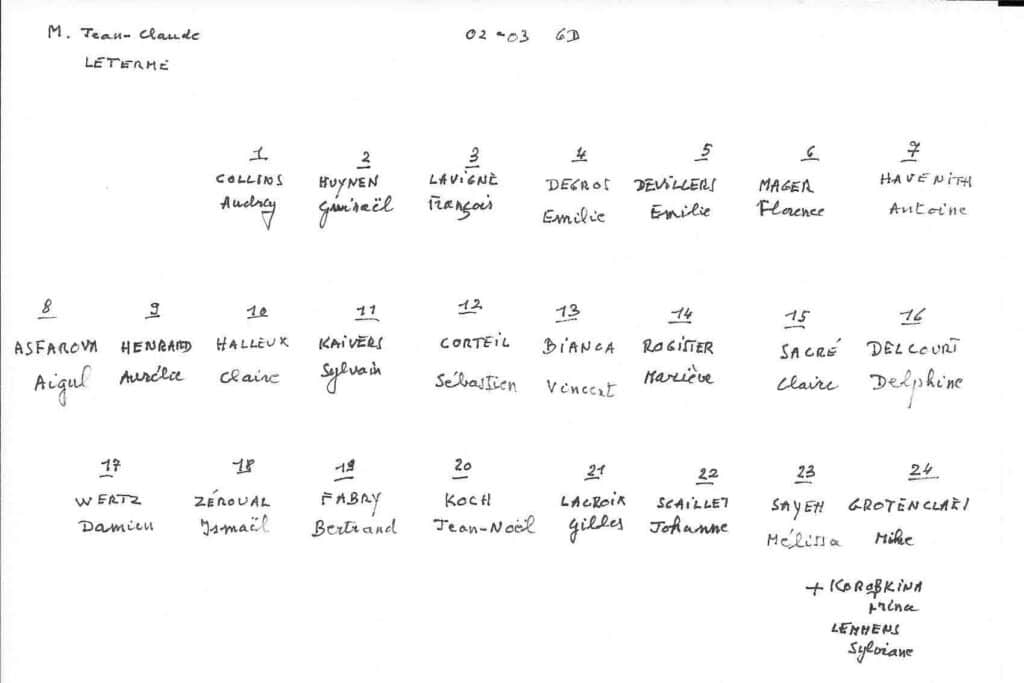 M. Jean-Claude 02-03 6D
LETERME
1 2 3 4 5 6 7
COLLINS HUYNEN LAVIGNE DEGROS DEVILLERS MAGER HAVENITH
Audrey François Emilie Emilie Florence Antoine
8 9 10 11 12 13 14 15 16
ASFAROVA HENRARD HALLEUX KAIVERS CORTEIL BIANCA ROGISTER SACRÉ DELCOURT
Aigul Aurélie Claire Sylvain Sébastien Vincent Mariève Claire Delphine
17 18 19 20 21 22 23 24
WERTZ ZÉROUAL FABRY KOCH LACROIX SCAILLET SAYEH GROTENCLAES
Damien Ismaël Bertrand Jean-Noël Gilles Johanne Mélissa Mike
+ KOROBKINA
Irina
LEMMENS
Sylviane